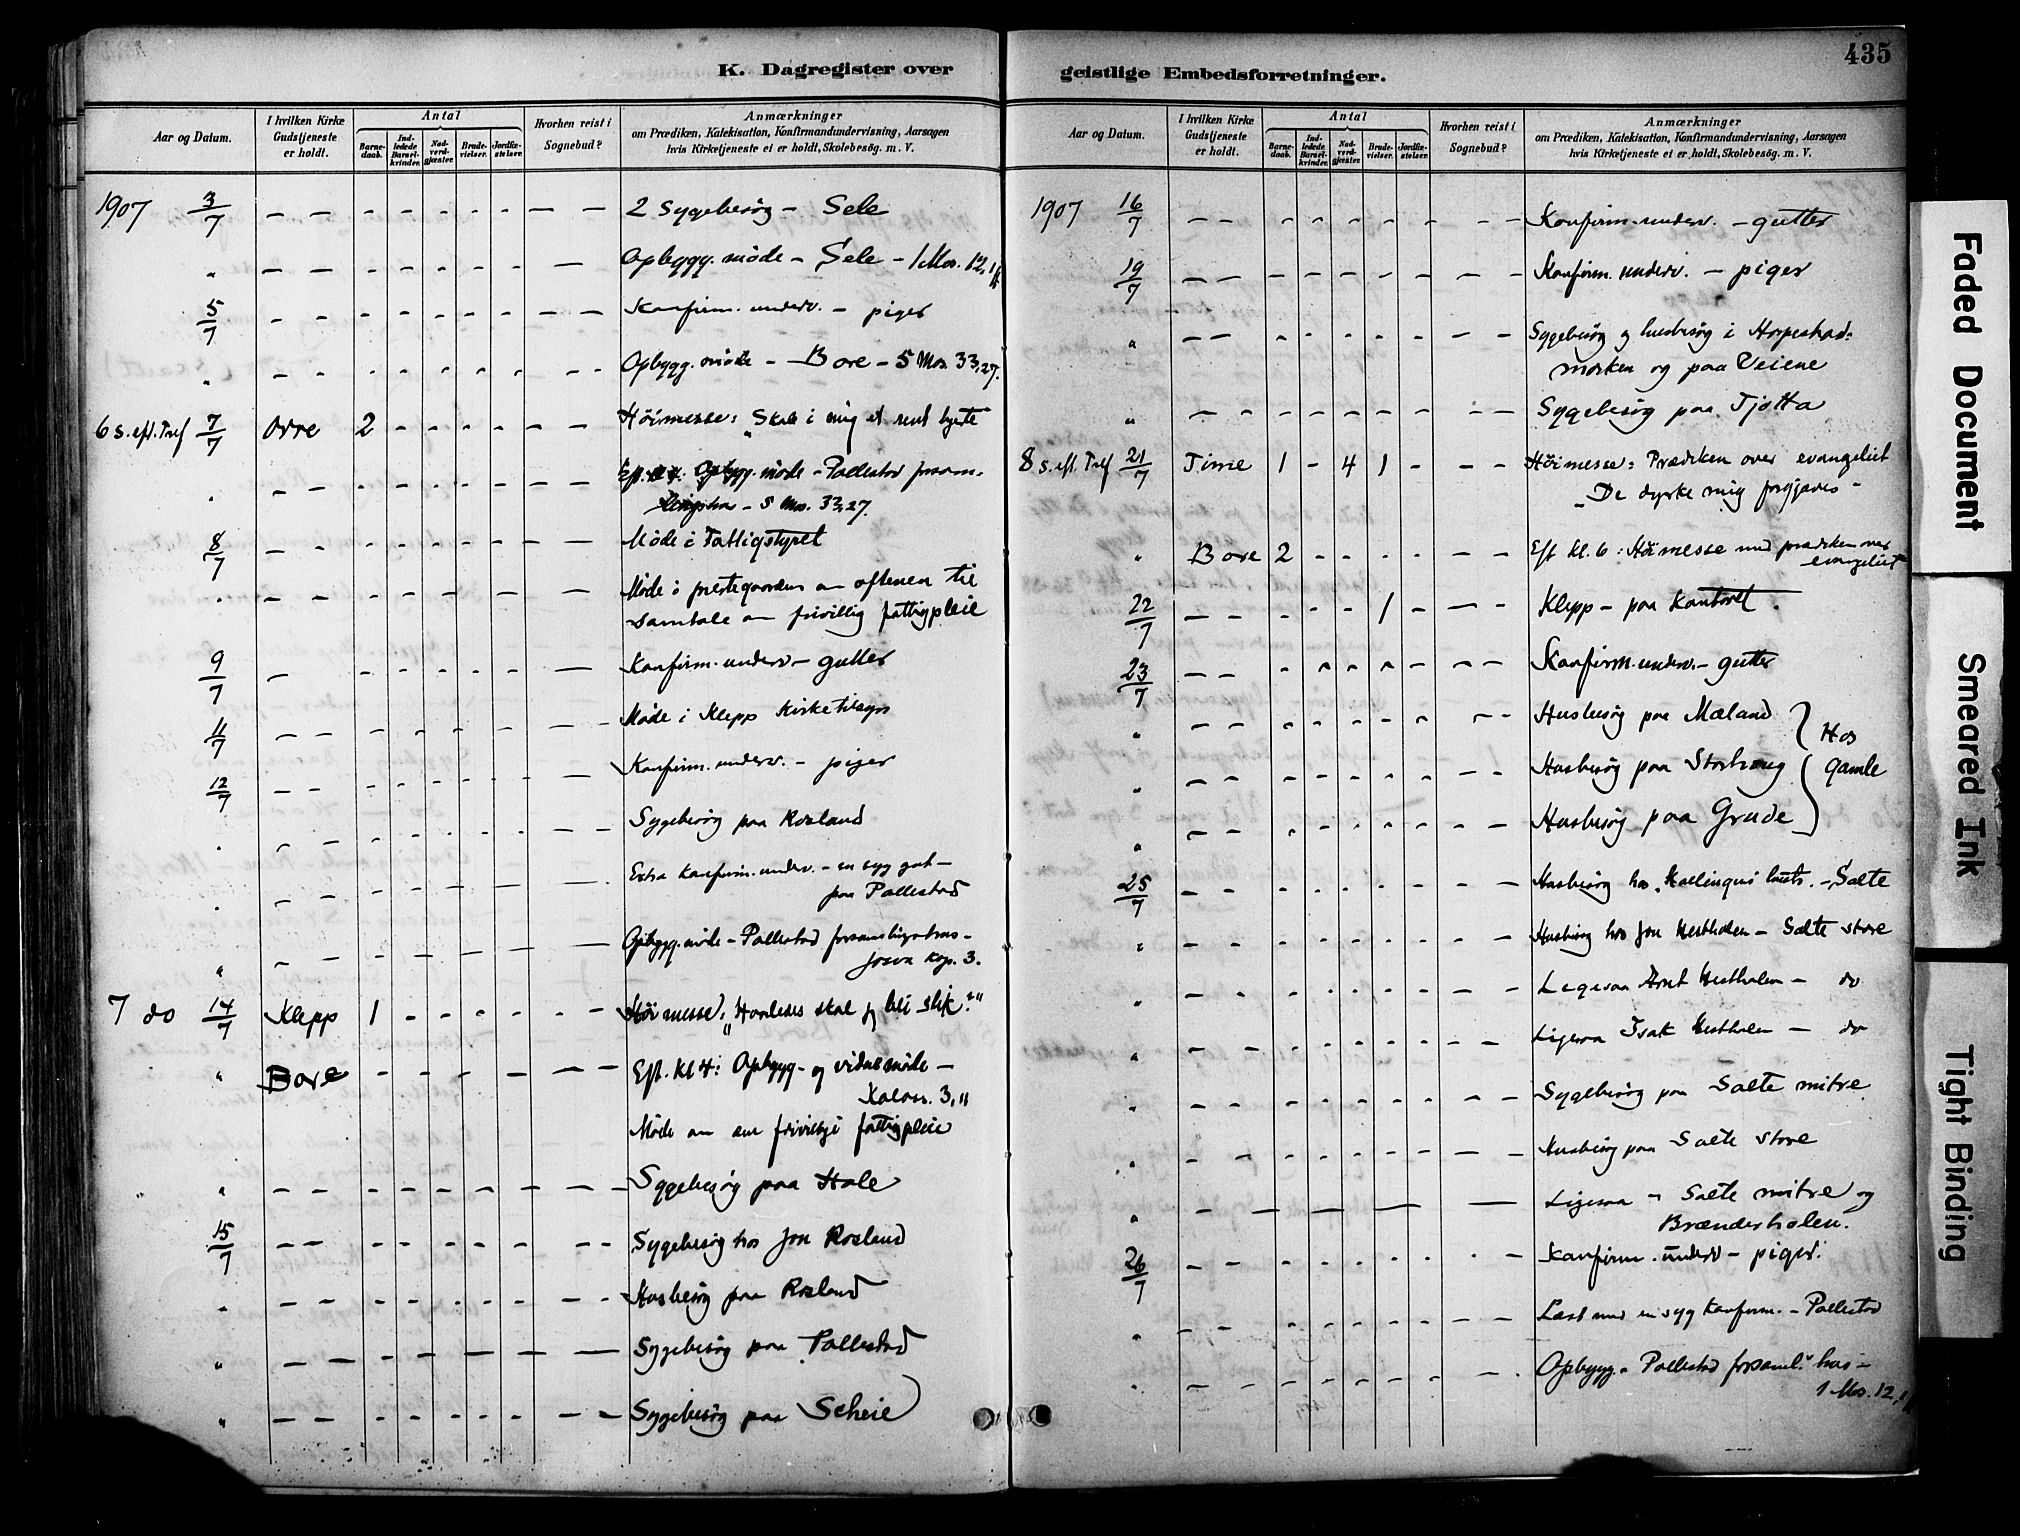 435
K. Dagregister over
Aar og Datum.
I hvilken Kirke Gudstjeneste er holdt.
Antal
Barne-daab.
Ind-ledede Barsel-kvinder.
Nad-verd-gjæster.
Brude-vielser.
Jordfæ-stelser.
Hvorhen reist i Sognebud?
Anmærkninger
om Prædiken, Katekisation, Konfirmandundervisning, Aarsagen
hvis Kirketjeneste ei er holdt, Skolebesøg. m. V.
1907 3/7 – – – – – – – – – 2 Sygebesøg – Sele
" – – – – – – – – Opbygg. møde – Sele – 1 Mos. 12,1ff
5/7 – – – – – – – – – Konfirm. underv. – piger
" – – – – – – – – – Opbygg. møde – Bore – 5 Mos. 33,27.
6 s. eft. Tref 7/7 Orre 2 – – – – – – Høimesse: "Skab i mig et rent hjerte"
" – – – – – – – – – Opbygg. møde – Pollestad forsam-
lingshus – 5 Mos. 33,27.
8/7 – – – – – – – – – Møde i Fattigstyret
" – – – – – – – – – Møde i prestegaarden om aftenen til
samtale om frivillig fattigpleie
9/7 – – – – – – – Konfirm. underv – gutter
11/7 – – – – – – – – – Møde i Klepp Kirketilsyn
12/7 – – – – – – – – Konfirm. underv. – piger
" – – – – – – – – – Sygebesøg paa Rosland
" – – – – – – – – – Extra Konfirm. underv. – en syg gut –
paa Pollestad
" – – – – – – – – – Opbygg. møde – Pollestad forsamlingshus –
Josva Kap. 3.
7 do 14/7 Klepp 1 – – – – – – Høimesse: "Hvorledes skal jeg bli slik?"
" Bore – – – – – – – Eft. Kl 4: Opbygg- og vidnesmøde –
Koloss. 3,11
Møde om den frivillige fattigpleie
" – – – – – – – – – Sygebesøg paa Hole
15/7 – – – – – – – – – Sygebesøg hos Jon Rosland
" – – – – – – – – – Husbesøg paa Rosland
" – – – – – – – – – Sygebesøg paa Pollestad
" – – – – – – – – – Sygebesøg paa Scheie
geistlige Embedsforretninger.
Aar og Datum.
I hvilken Kirke Gudstjeneste er holdt.
Antal
Barne-daab.
Ind-ledede Barsel-kvinder.
Nad-verd-gjæster.
Brude-vielser.
Jordfæ-stelser.
Hvorhen reist i Sognebud?
Anmærkninger
om Prædiken, Katekisation, Konfirmandundervisning, Aarsagen
hvis Kirketjeneste ei er holdt, Skolebesøg. m. V.
1907 16/7 – – – – – – – – – Konfirm. underv. – gutter
19/7 – – – – – – – – – Konfirm. underv. – piger
" – – – – – – – – – Sygebesøg og husbesøg i Horpestad-
marken og paa Veiene
" – – – – – – – – – Sygebesøg paa Tjøtta
8 s. eft. Tref 21/7 Time 1 – 4 1 – – – Høimesse: Prædiken over evangeliet
"De dyrke mig forgjæves"
" Bore 2 – – – – – – Eft Kl. 6: Høimesse med prædiken over
evangeliet
22/7 – – – – – 1 – – – Klepp – paa Kontoret.
23/7 – – – – – – – – – Konfirm. underv. – gutter
" – – – – – – – – – Husbesøg paa Mæland
" – – – – – – – – – Husbesøg paa Storhaug
" – – – – – – – – – Husbesøg paa Grude
Hos
gamle
25/7 – – – – – – – – – Husbesøg hos – Salte
" – – – – – – – – – Husbesøg hos Jon Hestholen – Salte store
" – – – – – – – – – Ligesaa Arnt Hestholen – do
" – – – – – – – – – Ligesaa Isak Hestholen – do
" – – – – – – – – – Sygebesøg paa Salte mitre
" – – – – – – – – – Husbesøg paa Salte store
" – – – – – – Ligesaa – Salte mitre og
Brænderholen.
26/7 – – – – – – – – – Konfirm. underv – piger.
" – – – – – – – – – Læst med en syg Konfirm. – Pollestad
" – – – – – – – – – Opbygg. Pollestad forsaml. hus –
1 Mos. 12,1
Faded Document
Smeared Ink
Tight Binding